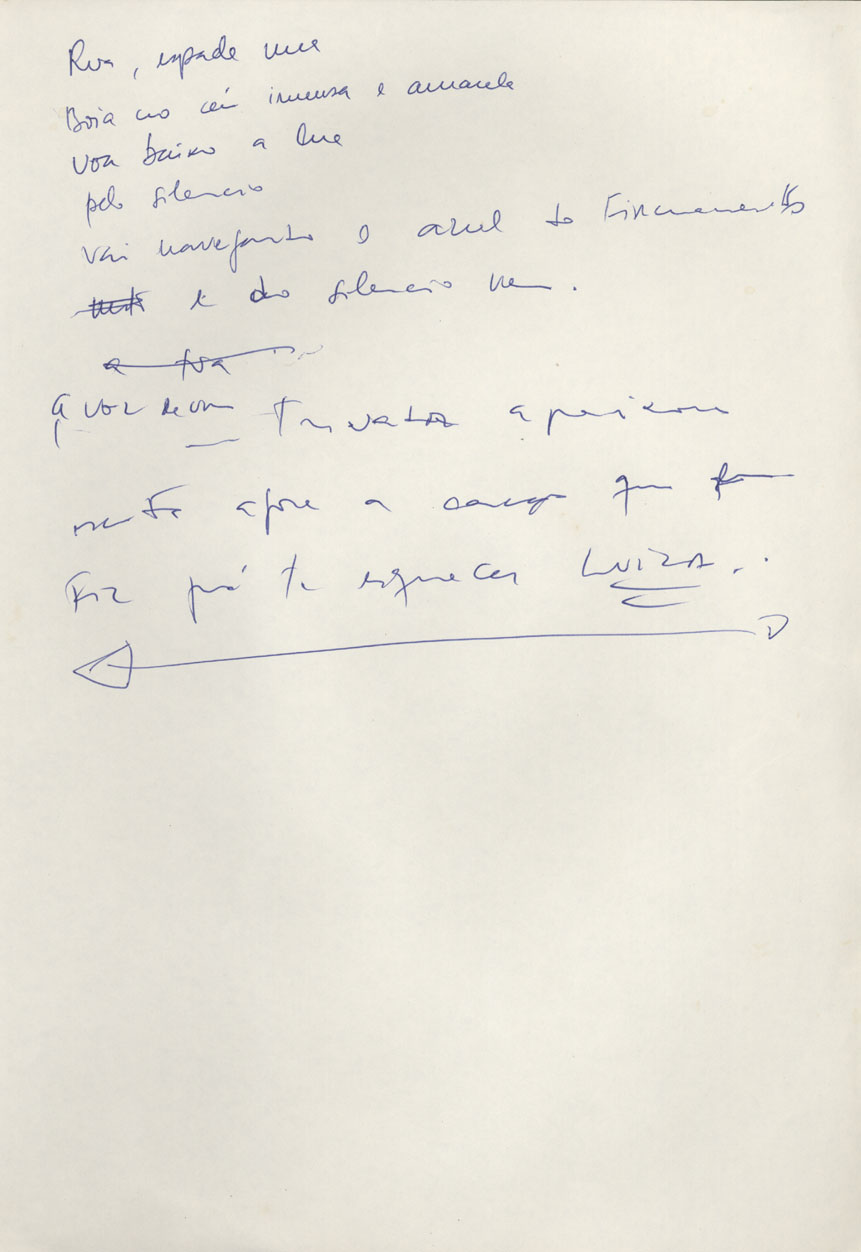 Rua, espada nua
Boia no céu imensa e amarela
voa baixo a lua
pelo silencio
vai navegando o azul do Firmamento
e do silencio
a tua
a voz de um Trovador apaixona
a
Fiz prá te esquecer LUIZA..